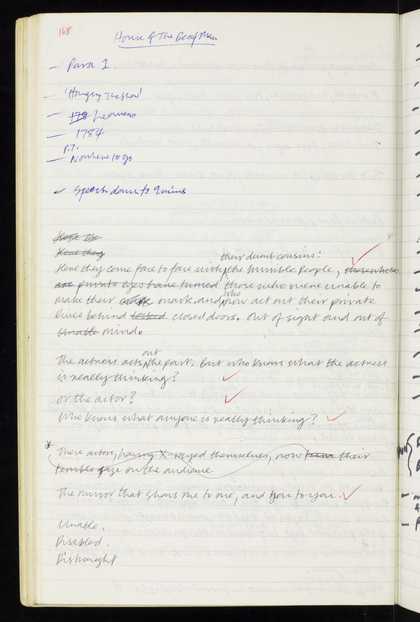 168
House of The Deaf Man
— Para 1
— 'Hungry
—
— 1784
P.T.
— Nowhere to go
— Speech down to 2 mins
Here the
Here they
their dumb cousins:
Here they come face to face with the humble people, those who
are private eyes have turned those who were unable to
who
make their mark and now act out their private
lives behind closed doors. Out of sight and out of
unable mind.
out
The actress acts the part. But who knows what the actress
is really thinking?
or the actor?
Who knows what anyone is really thinking?
* These actors, having X-rayed themselves, now turn their
terrible gaze on the audience
The mirror that shows me to me, and you to you.
Unable.
Disabled.
Distraught